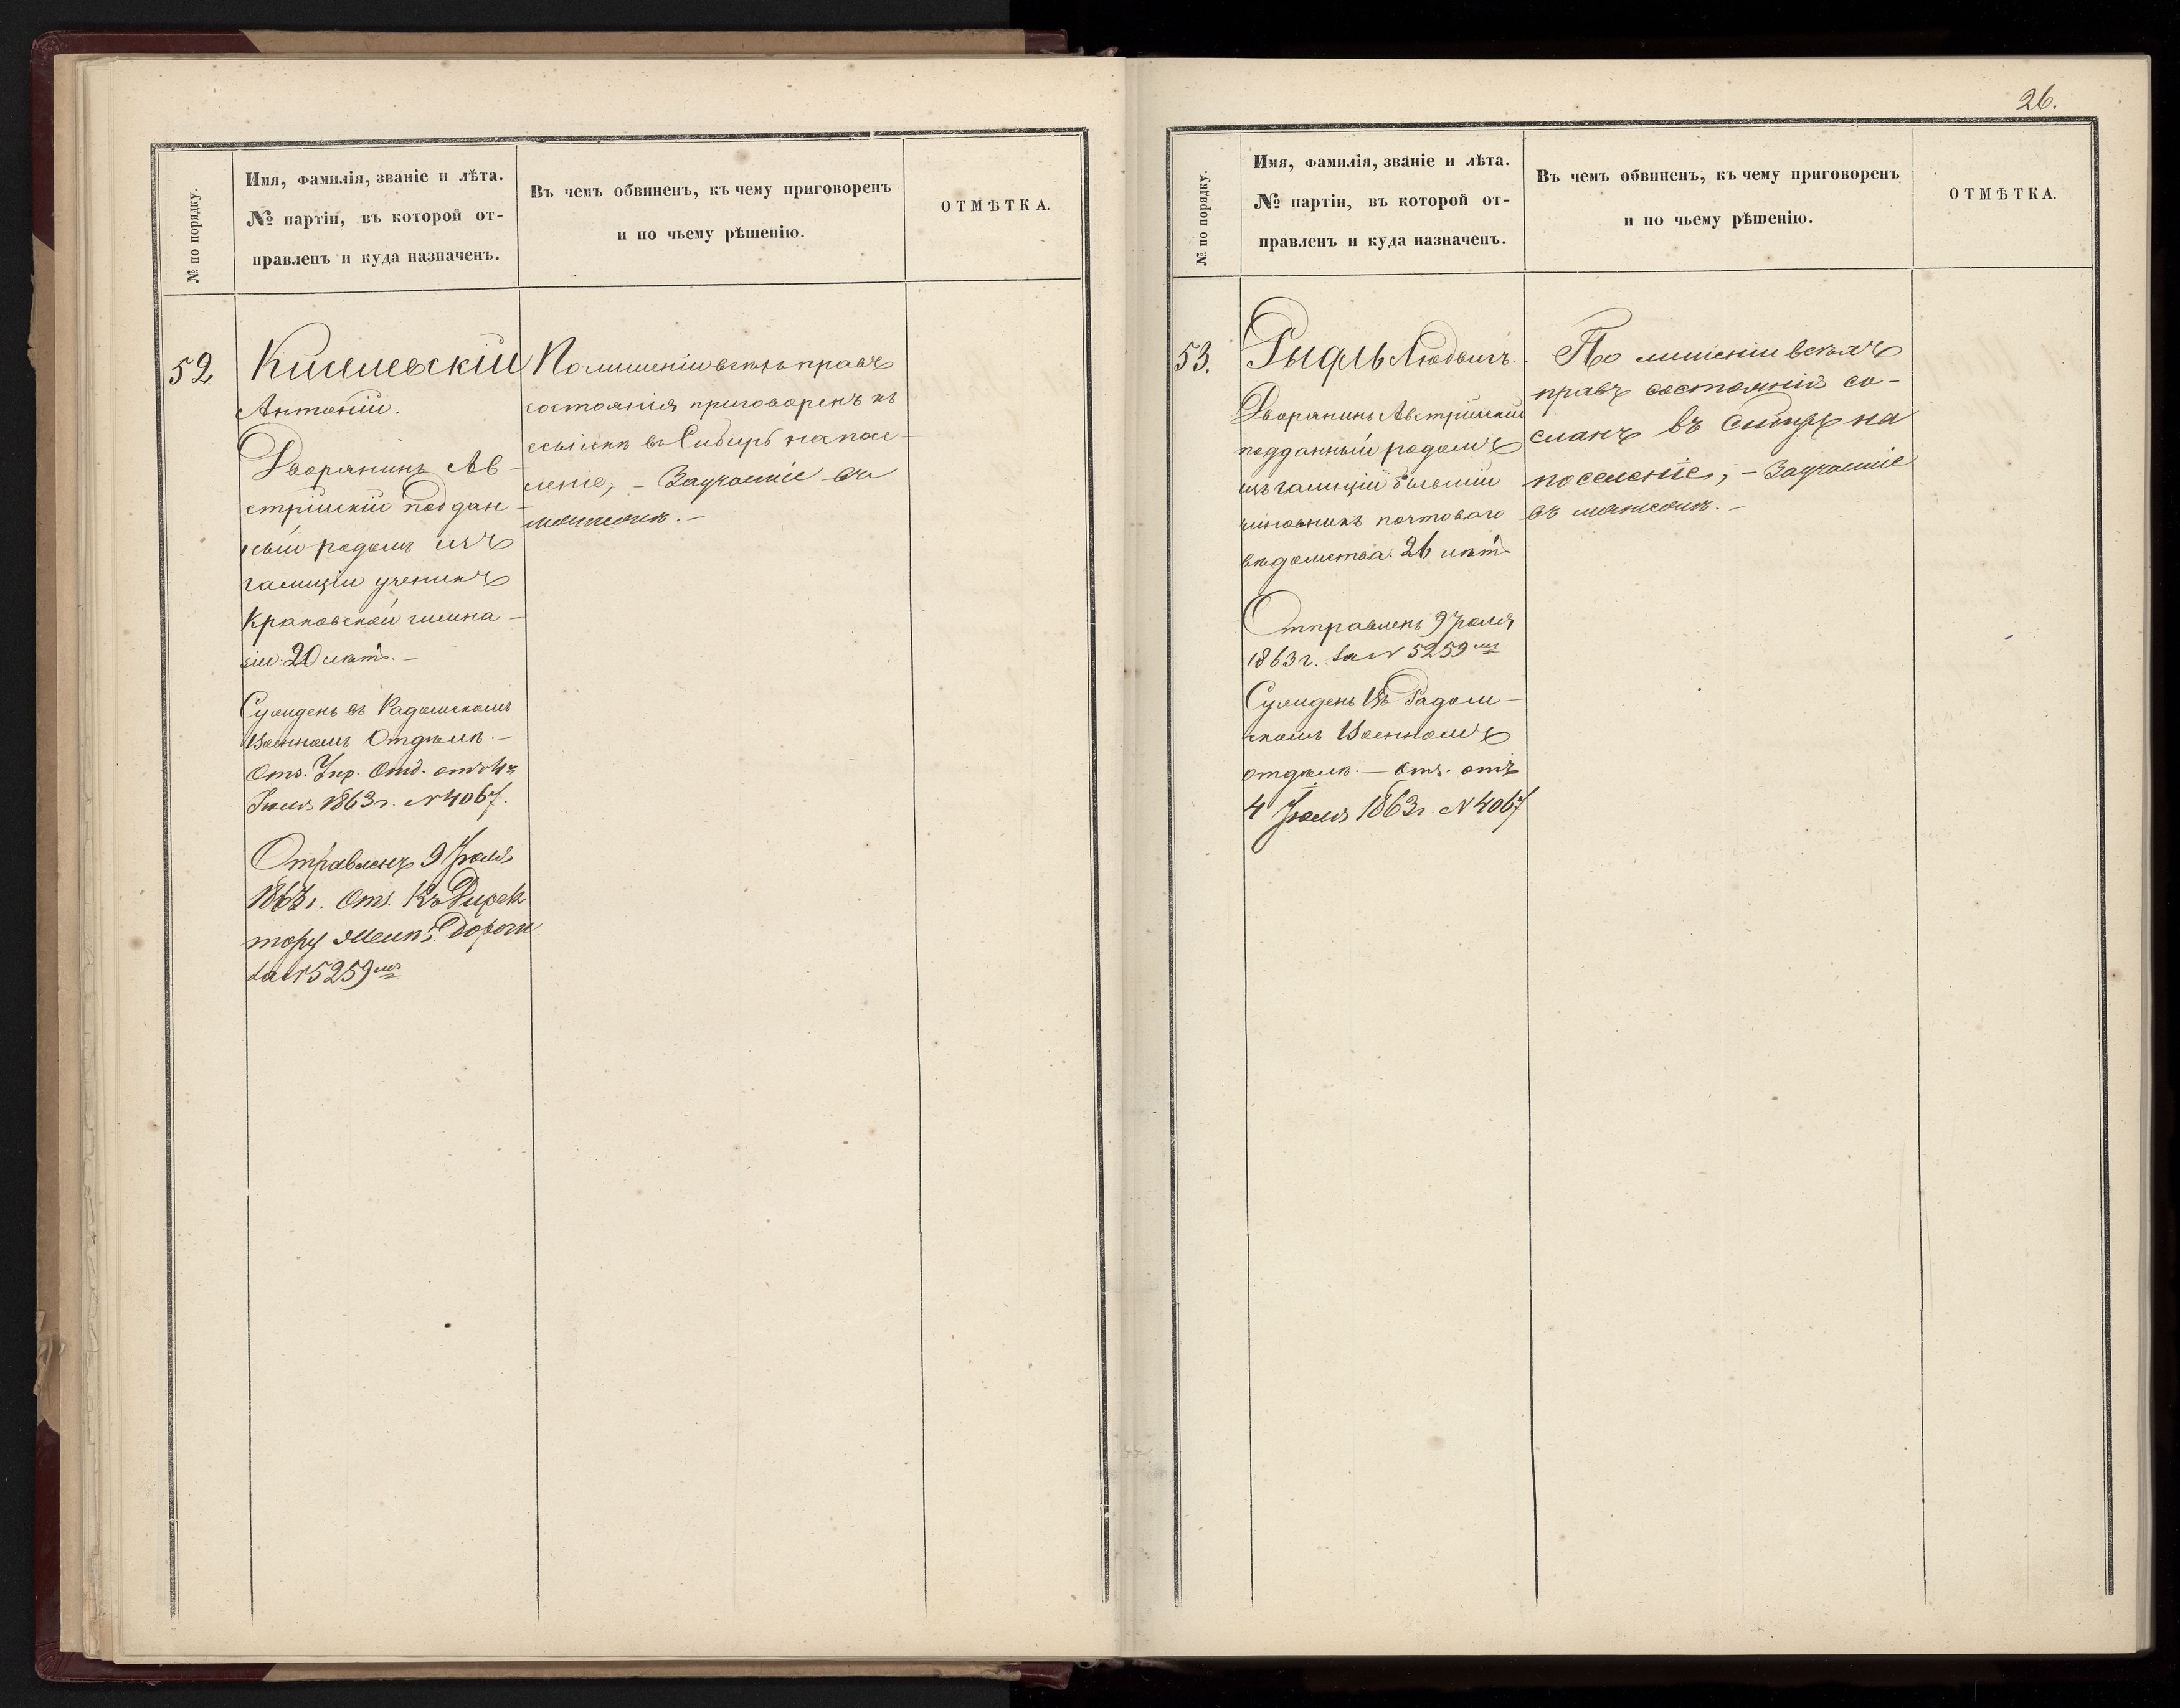 № по порядку.
Имя, фамилія, званіе и лѣта.
№ партіи, въ которой от-
правленъ и куда назначенъ.
Въ чемъ обвиненъ, къ чему приговоренъ
и по чьему рѣшенію.
ОТМѢТКА.
52.
Антоній.
Дворянинъ Ав-
стрійскій поддан-
ный родомъ изъ
галиціи ученикъ
Краковской гимна-
зіи 20 лѣтъ. —
Сужденъ въ Радомскомъ
Военномъ Отдѣлѣ. —
Отз. Отд. отъ 4
Іюля 1863 г. № 4067.
Отправленъ 9 Іюля
1863 г. Отз. Къ Дирек
тору Желѣз. Дороги
за № 5259
По лишеніи всѣхъ правъ
состоянія приговоренъ къ
ссылкѣ въ Сибирь на посе-
леніе; — За участіе въ
мятежѣ. —
26.
№ по порядку.
Имя, фамилія, званіе и лѣта.
№ партіи, въ которой от-
правленъ и куда назначенъ.
Въ чемъ обвиненъ, къ чему приговоренъ
и по чьему рѣшенію.
ОТМѢТКА.
53.
Рыдль Людвигъ.
Дворянинъ Австрійскій
подданный родомъ
изъ галиціи бывшій
чиновникъ почтоваго
вѣдомства. 26 лѣтъ
Отправленъ 9 Іюля
1863 г. за № 5259
Сужденъ въ Радом-
скомъ Военномъ
отдѣлѣ. — Отз. отъ
4 Іюля 1863 г. № 4067
По лишеніи всѣхъ
правъ состояній со-
сланъ въ Сибирь на
поселеніе, — За участіе
въ мятежѣ. —